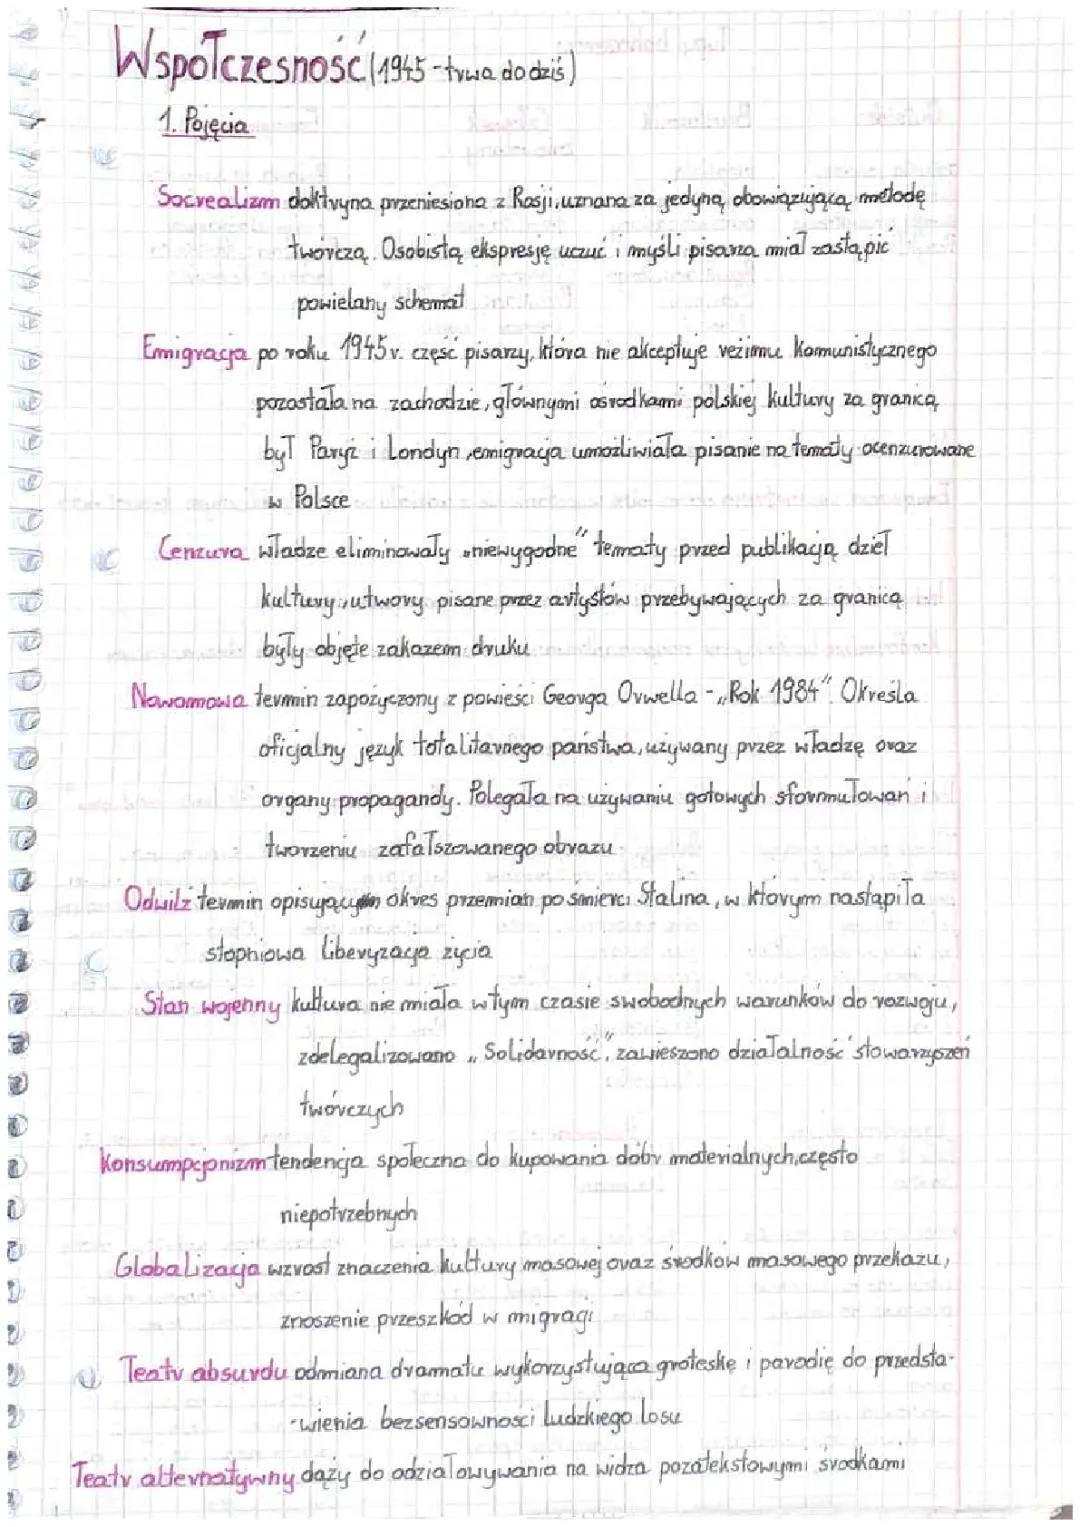 Współczesność (1945 - trwa do dziś)
1. Pojęcia
Socrealizm doktryna przeniesiona z Rosji, uznana za jedyną obowiązującą metodę
twórczą. Osobistą ekspresję uczuć i myśli pisarza miał zastąpić
powielany schemat
Emigracja po roku 1945r. część pisarzy, która nie akceptuje reżimu komunistycznego
pozostała na zachodzie, głównymi osrodkami polskiej kultury za granicą
był Paryż i Londyn, emigracja umożliwiała pisanie na tematy ocenzurowane
w Polsce
Cenzura władze eliminowały „niewygodne" tematy przed publikacją dzieł
kultury, utwory pisane przez artystów przebywających za granicą
były objęte zakazem druku
Nowomowa termin zapożyczony z powieści Georga Orwella - „Rok 1984". Określa
oficjalny język totalitarnego państwa, używany przez władzę oraz
organy propagandy. Polegała na używaniu gotowych sformułowań i
tworzeniu zafałszowanego obrazu
Odwilż termin opisujący okres przemian po śmierci Stalina, w którym nastąpiła
stopniowa liberyzacja życia
Stan wojenny kultura nie miała w tym czasie swobodnych warunków do rozwoju,
zdelegalizowano „Solidarność", zawieszono działalność stowarzyszeń
twórczych
Konsumpcjonizm tendencja społeczna do kupowania dóbr materialnych, często
niepotrzebnych
Globalizacja wzrost znaczenia kultury masowej oraz środków masowego przekazu,
znoszenie przeszkód w migragi
Teatr absurdu odmiana dramatu wykorzystująca groteskę i parodię do przedsta-
-wienia bezsensowności ludzkiego losu
Teatr alternatywny dąży do odziałowywania na widza pozatekstowymi środkami